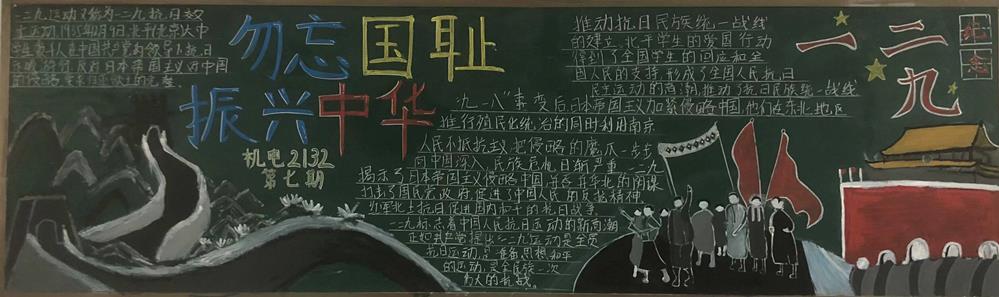 一二九运动又称为一二九抗日救
亡运动1935年12月9日北平(北京)大中
学生数千人在中国共产党的领导下抗日
反对日本帝国主义
勿忘国耻
振兴中华
机电2132
第七期
推动抗日民族统一战线
的建立,北平学生的爱国行动
得到了全国学生的回应和全
国人民的支持,形成了全国人民抗日
民主运动的高潮,推动了抗日民族统一战线
"九一八"事变后,日本帝国主义加紧侵略中国,他们在东北地区
推行殖民化统治的同时利用南京
人民不抵抗主义把侵略的魔爪一步步
向中国深入,民族危机日渐严重,一二九
揭示了日本帝国主义侵略中国,并吞并华北的阴谋
打击了国民党政府,促进了中国人民的反抗精神
红军北上抗日促进国内和平的抗日战争
一二九标志着中国人民抗日运动的新高潮
正如共产党提出一二九运动是全员
抗日运动,准备思想和平
的运动,是全民族一次
伟大的抗战。
一二九
纪念